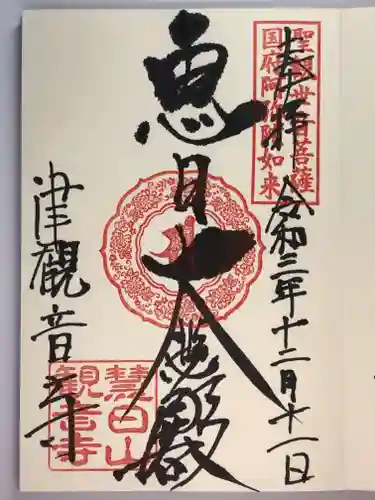 奉拝
令和三年十二月十一日
聖観世音菩薩
国府阿弥陀如来
恵日大慈殿
津観音寺
慧日山
観音寺